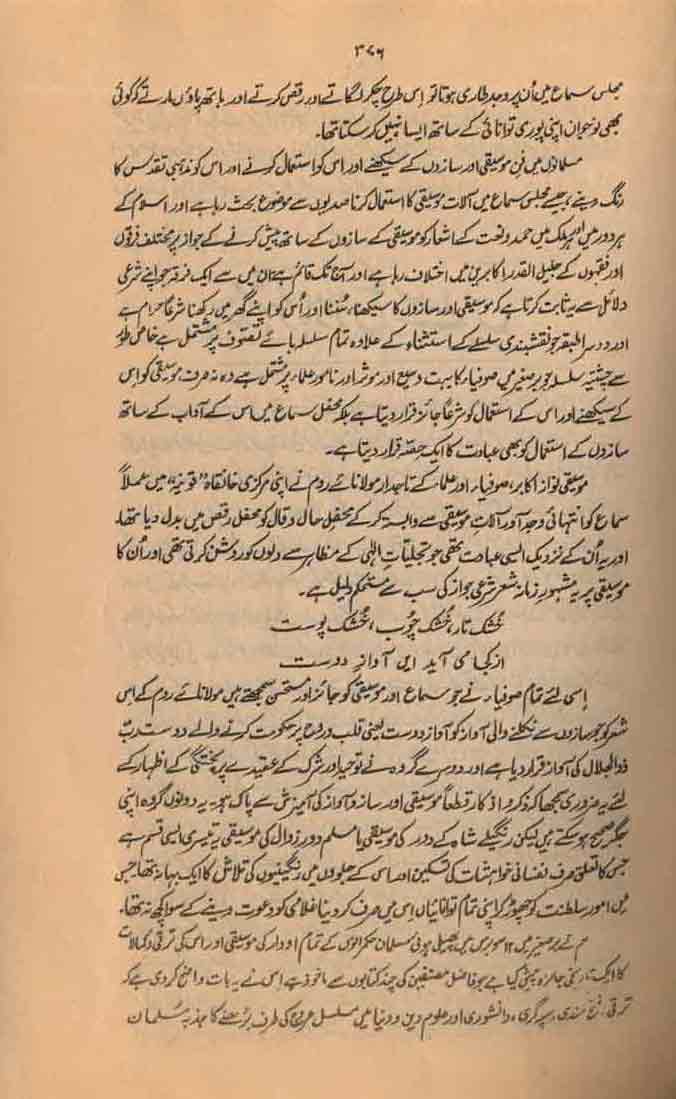 ۳۷۶
مجلس سماع میں اُن پر وجد طاری ہوتا تو اِس طرح چکر لگاتے اور رقص کرتے اور ہاتھ پاؤں مارتے کہ کوئی
بھی نوجوان اپنی پوری توانائی کے ساتھ ایسا نہیں کر سکتا تھا۔
مسلمانوں میں فنِ موسیقی اور سازوں کے سیکھنے اور اس کو استعمال کرنے اور اس کو مذہبی تقدس کا
رنگ دینے، جیسے مجلس سماع میں آلات موسیقی کا استعمال کرنا صدیوں سے موضوع بحث رہا ہے اور اسلام کے
ہر دور میں اور ہر ملک میں حمد و نعت کے اشعار کو موسیقی کے سازوں کے ساتھ پیش کرنے کے جواز پر مختلف فرقوں
اور فقہوں کے جلیل القدر اکابرین میں اختلاف رہا ہے اور آج تک قائم ہے، ان میں سے ایک فرقہ جو اپنے شرعی
دلائل سے یہ ثابت کرتا ہے کہ موسیقی اور سازوں کا سیکھنا، سُننا اور اُس کو اپنے گھر میں رکھنا شرعاً حرام ہے
اور دوسرا طبقہ جو نقشبندی سلسلے کے استثناء کے علاوہ تمام سلسلہ ہائے تصوف پر مشتمل ہے خاص طور
سے چشتیہ سلسلہ جو برصغیر میں صوفیاء کا بہت وسیع اور موثر اور نامور علماء پر مشتمل ہے وہ نہ صرف موسیقی کو اِس
کے سیکھنے اور اس کے استعمال کو شرعاً جائز قرار دیتا ہے بلکہ محفل سماع میں اس کے آداب کے ساتھ
سازوں کے استعمال کو بھی عبادت کا ایک حصہ قرار دیتا ہے۔
موسیقی نواز اکابر، صوفیاء اور علماء کے تاجدار مولانائے روم نے اپنی مرکزی خانقاہ "قونیہ" میں عملاً
سماع کو انتہائی وجد آور آلاتِ موسیقی سے وابستہ کر کے محفلِ حال و قال کو محفل رقص میں بدل دیا تھا۔
اور یہ اُن کے نزدیک ایسی عبادت تھی جو تجلیاتِ الٰہی کے مظاہر سے دلوں کو روشن کرتی تھی اور اُن کا
موسیقی پر یہ مشہورِ زمانہ شعر شرعی جواز کی سب سے مستحکم دلیل ہے۔
خُشک تار، خُشک چُوب، خُشک پوست
از کجا می آید ایں آوازِ دوست
اِسی لئے تمام صوفیاء نے جو سماع اور موسیقی کو جائز اور مستحسن سمجھتے ہیں مولانائے روم کے اس
شعر کو جو سازوں سے نکلنے والی آواز کو آوازِ دوست یعنی قلب و روح پر حکومت کرنے والے دوست ربّ
ذوالجلال کی آواز قرار دیا ہے اور دوسرے گروہ نے توحید اور شرک کے عقیدے پر پختگی کے اظہار کے
لئے یہ ضروری سمجھا کہ ذکر و اذکار قطعاً موسیقی اور ساز و آواز کی آمیزش سے پاک ہو۔ یہ دونوں گروہ اپنی
جگہ صحیح ہو سکتے ہیں لیکن رنگیلے شاہ کے دور کی موسیقی یا مسلم دورِ زوال کی موسیقی یہ تیسری ایسی قسم ہے
جس کا تعلق صرف نفسانی خواہشات کی تسکین اور اس کے جلووں میں رنگینیوں کی تلاش کا ایک بہانہ تھا۔ جس
میں امورِ سلطنت کو چھوڑ کر اپنی تمام توانائیاں اس میں صرف کر دینا غلامی کو دعوت دینے کے سوا کچھ نہ تھا۔
ہم نے برصغیر میں ۱۲ سو برس میں پھیلی ہوئی مسلمان حکمرانوں کے تمام ادوار کی موسیقی اور اس کی ترقی و کمالات
کا ایک تاریخی جائزہ پیش کیا ہے جو فاضل مصنفین کی چند کتابوں سے ماخوذ ہے اِس نے یہ بات واضح کر دی ہے کہ
ترقی، فتح مندی، سپہ گری، دانشوری اور علوم دین و دنیا میں مسلسل عروج کی طرف بڑھنے کا جذبہ مُسلمان